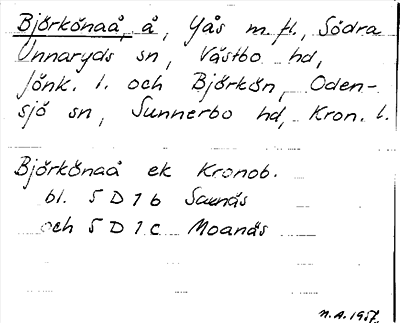 Björkönaå, å, Yås m. fl., Södra
Unnaryds sn, Västbo hd,
Jönk. l. och Björkön, Oden-
sjö sn, Sunnerbo hd, Kron. l.
Björkönaå ek Kronob.
bl. 5 D 1 b Saunäs
och 5 D 1 c Moanäs
N.A. 1957.